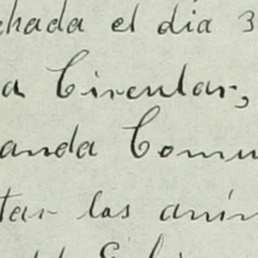 chada el dia 3
a Circular,
anda Comu
tar las aním